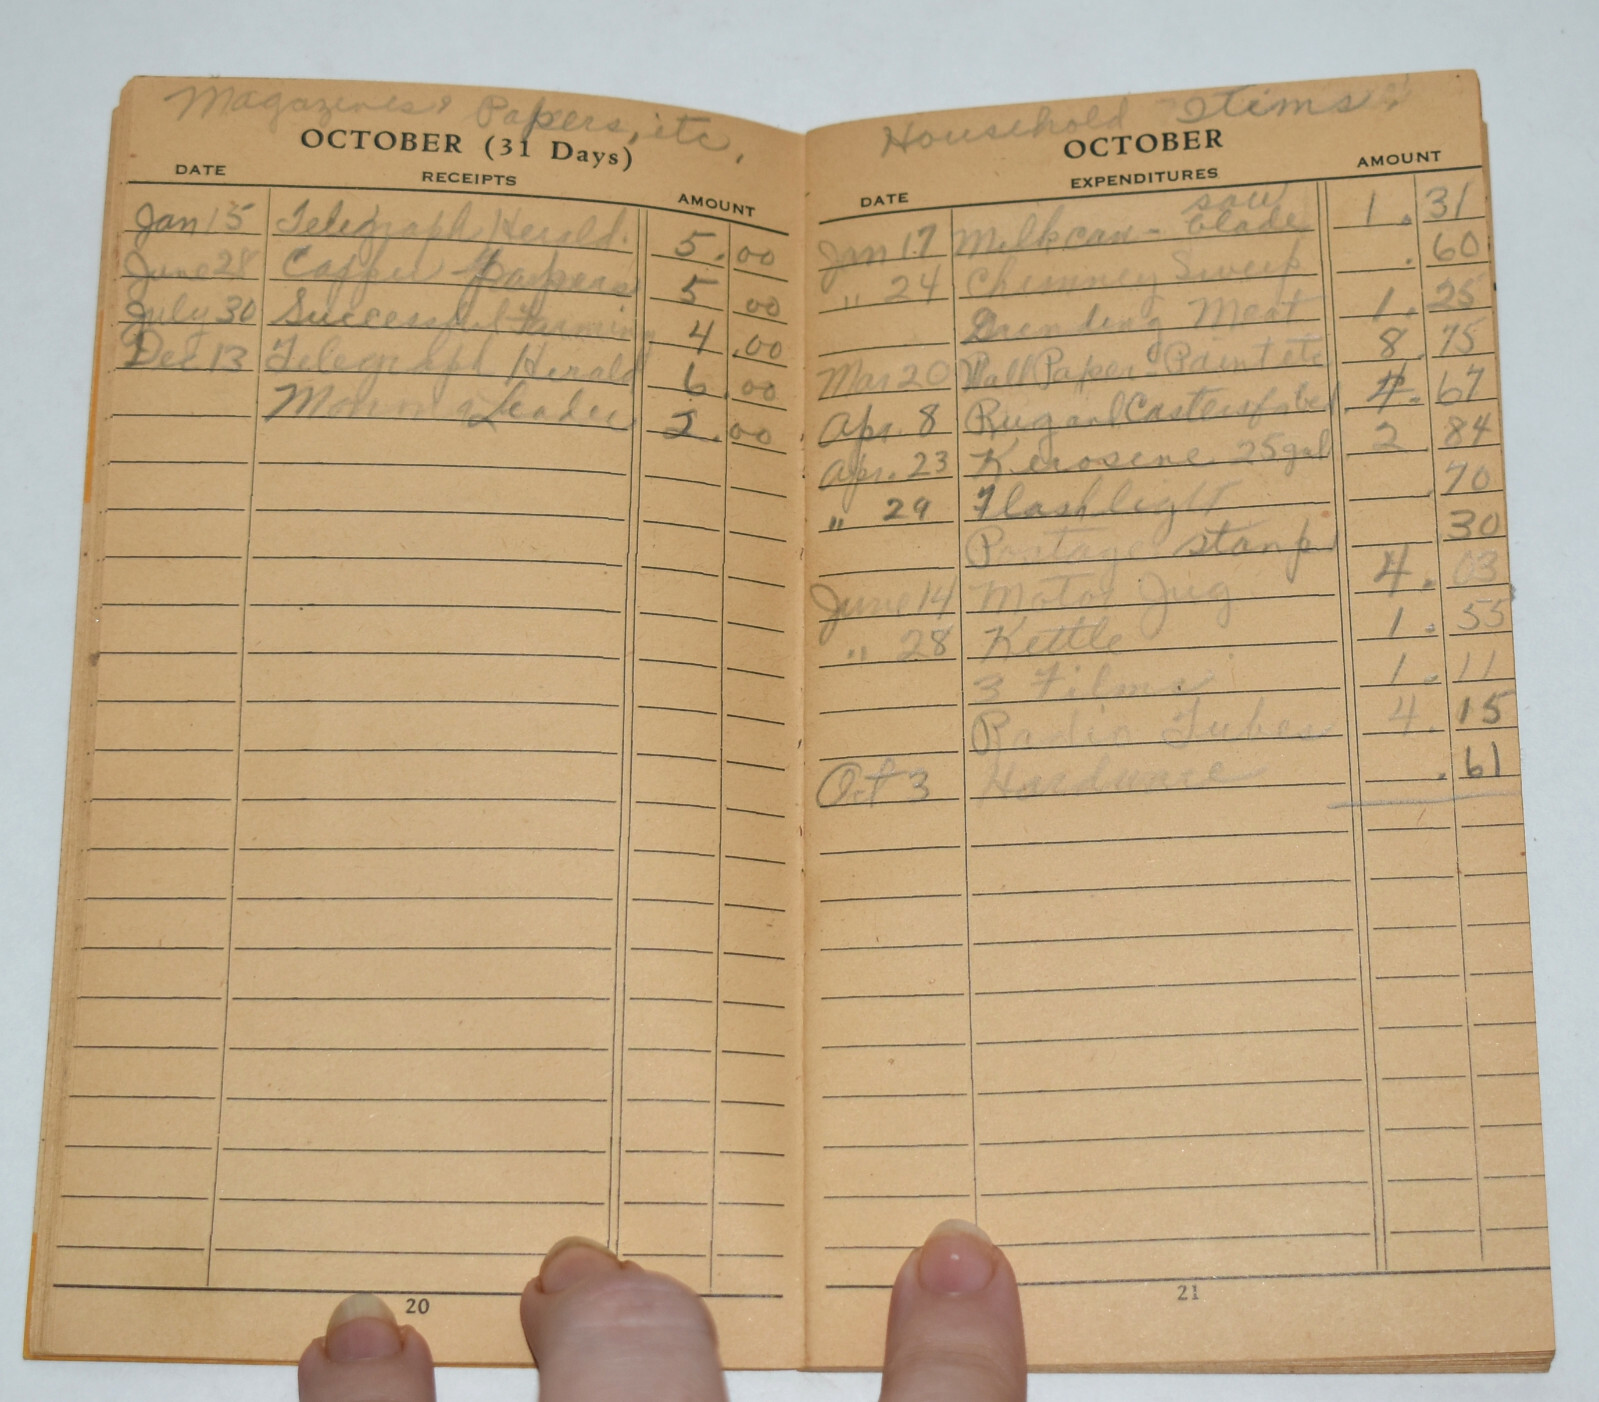 Magazines & Papers, etc.
OCTOBER (31 Days)
DATE RECEIPTS AMOUNT
Jan 15 Telegraph Herald. 5.00
June 28 Capper papers 5.00
July 30 Successful Farming 4.00
Dec 13 Telegraph Herald 6.00
Leader 2.00
20
Household Items.
OCTOBER
DATE EXPENDITURES AMOUNT
saw
Jan 17 Milkcan - blade 1.31
" 24 Chimney Sweep .60
Grending Meat 1.25
Mar 20 Wall Paper - Paint etc 8.75
Apr. 8 Rug and Casters for bed 4.67
Apr. 23 Kerosene 25 gal 2.84
" 29 Flashlight .70
Postage stamps 30
June 14 Motor Jug 4.03
" 28 Kettle 1.55
3 Films 1.11
Radio Tubes 4.15
Oct 3 Hardware .61
21